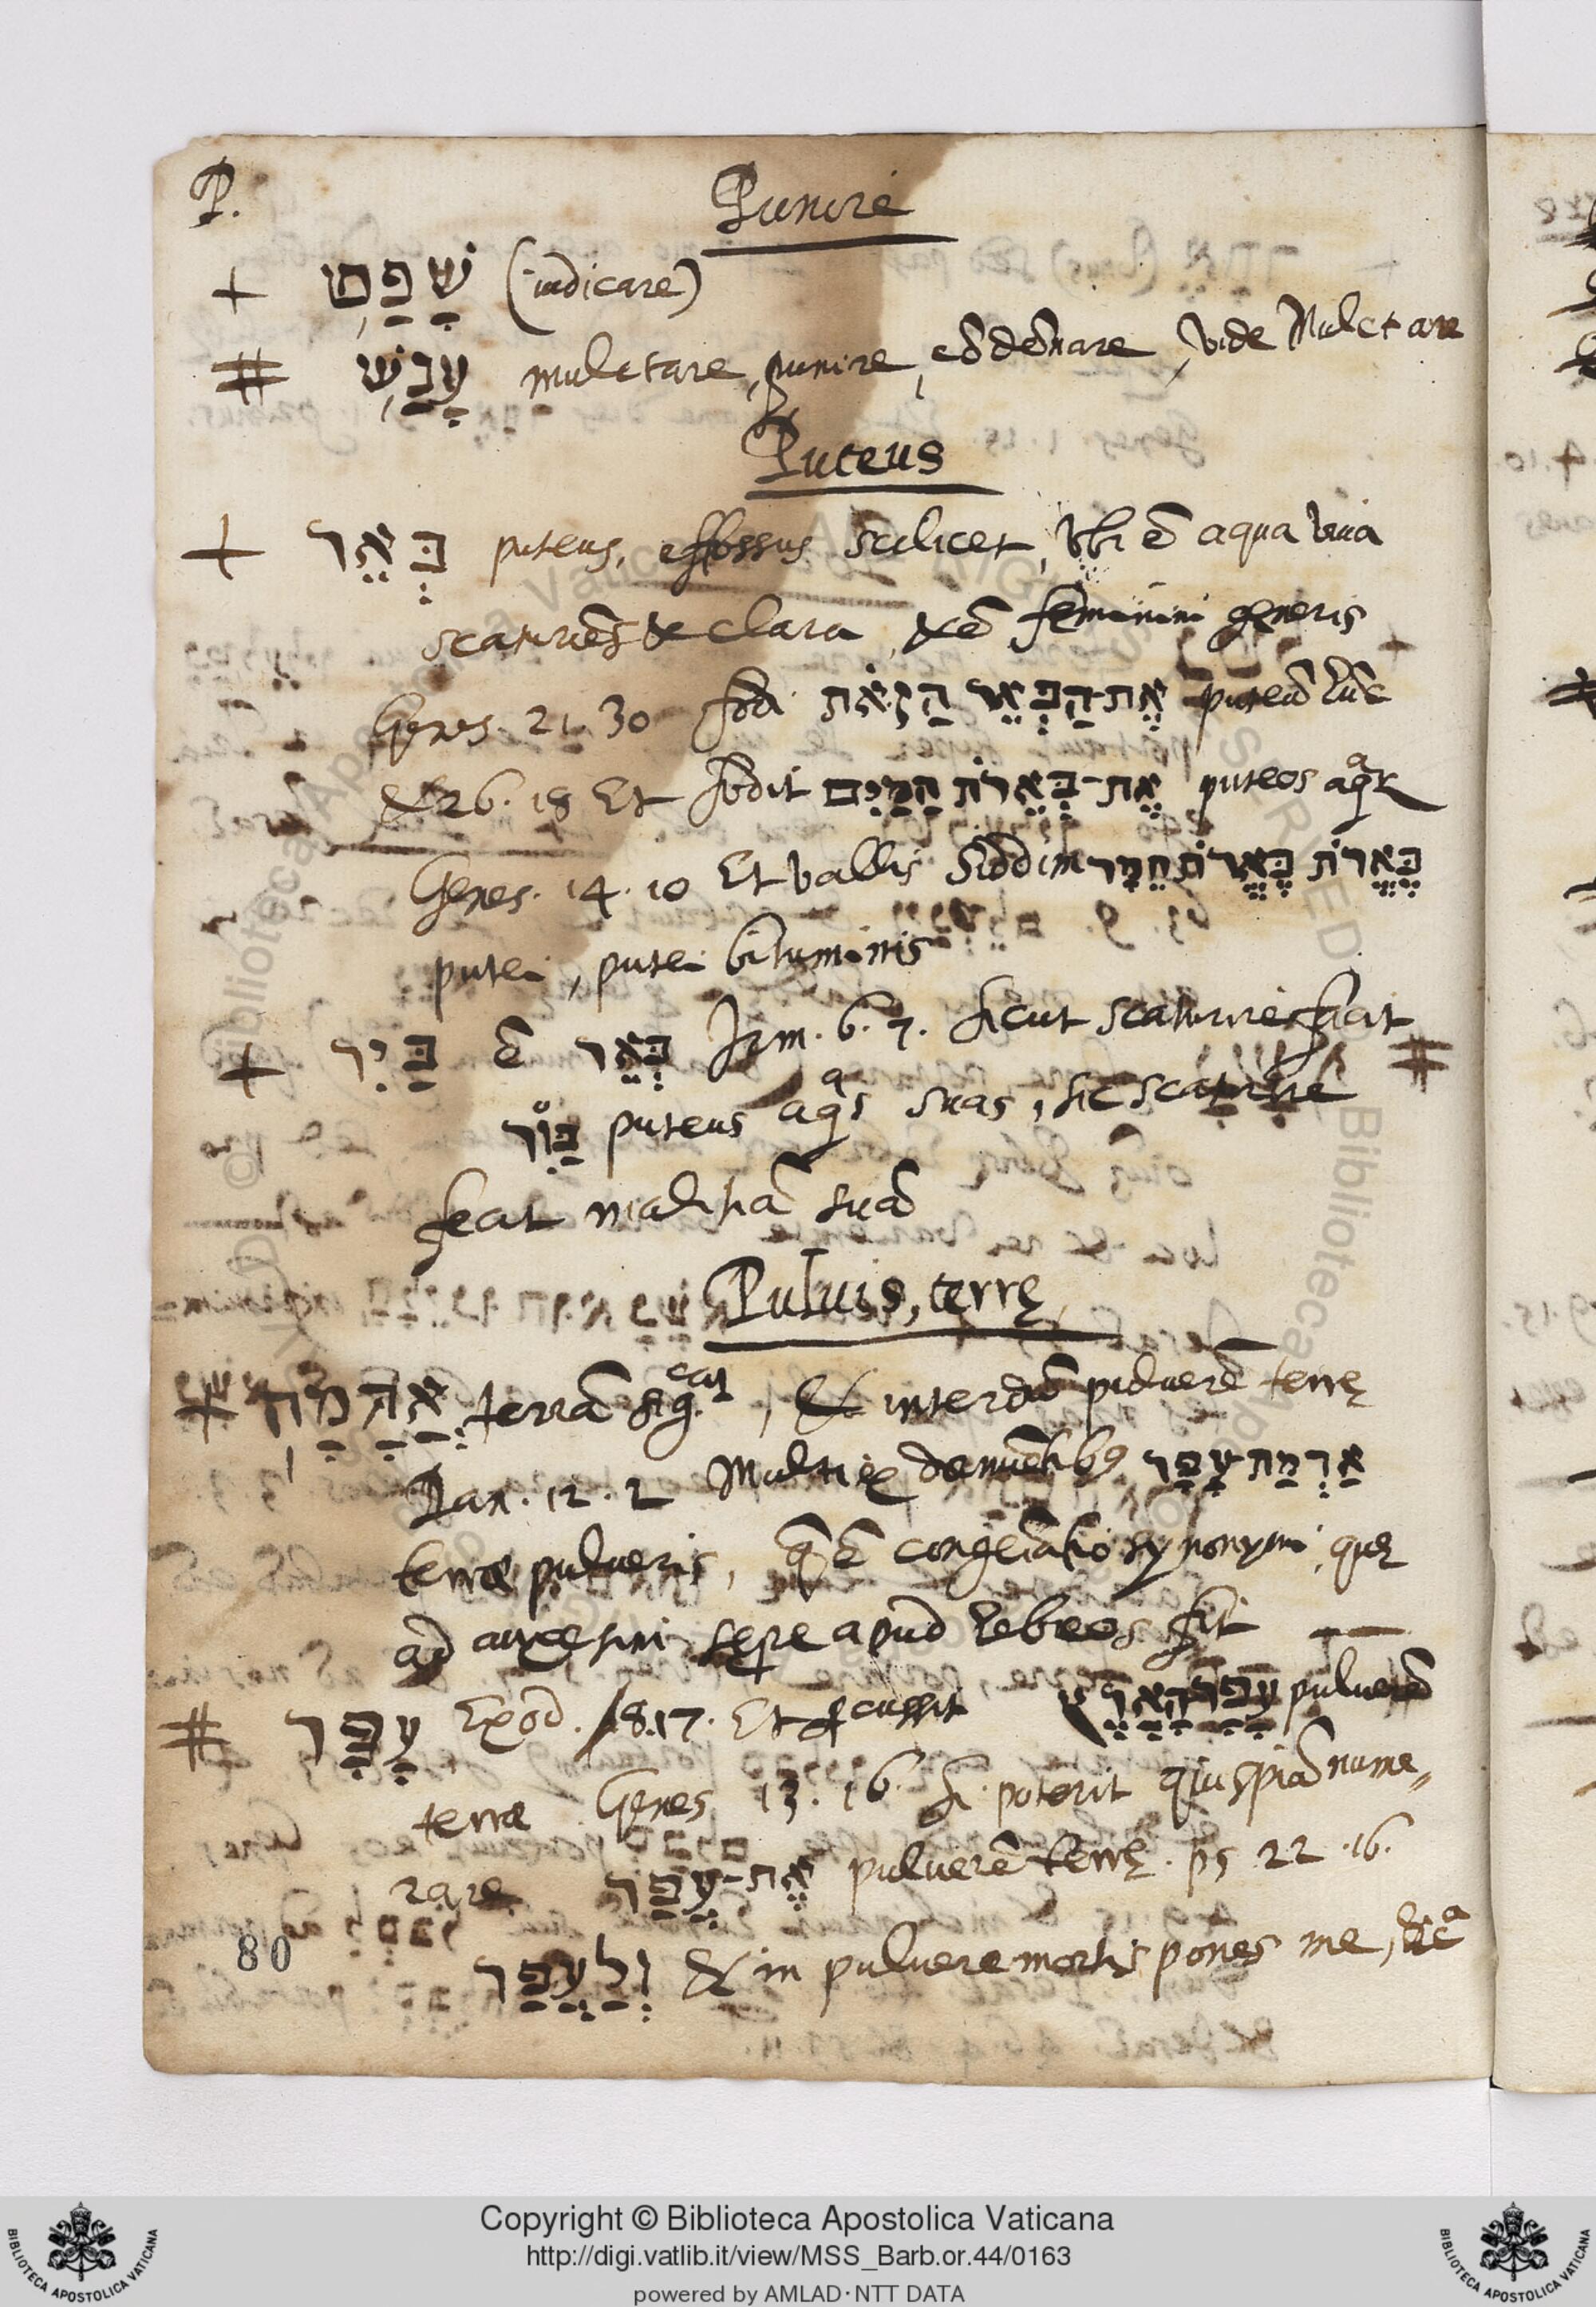 P.
Punire
+ שָׁפַט (iudicare)
# עָנַשׁ mulctare, punire, cōdēnare, vide Mulctare
Puteus
+ בְּאֵר puteus, effossus scilicet, vbi ē aqua viua
scaturiēs & clara, & ē feminini generis
Genes. 21. 30 fodi אֶת־הַבְּאֵר הַזֹּאת puteū hūc
& 26. 18 Et fodit אֶת־בְּאֵרֹת הַמַּיִם puteos aqr
Genes. 14. 10 Et vallis Siddim בֶּאֱרֹת בֶּאֱרֹת חֵמָר
putei, putei bituminis
+ בַּיִר ē בְּאֵר Irm. 6. 7. sicut scaturire facit #
בַּוִר puteus aqs suas, sic scaturire
fecit malitiā suā
Puluis, terrę
# אַדְמַת terrā sig.cat, & interdū puluerē terrę
Dan. 12. 2 Multi ex dormiētibꝰ אַדְמַת עָפָר
terræ pulueris, q̄ ē congeminatio synonymi, quę
ad auxesim sępe apud hebreos fit
# עָפָר Exod. 8.17. Et percussit עֲפַר הָאָרֶץ puluerē
terræ Genes 13. 16. si poterit quispiā nume-
rare אֶת־עֲפַר puluerē terrę. ps 22. 16.
80 וְלַעֲפַר & in puluere mortis pones me,
Copyright © Biblioteca Apostolica Vaticana
http://digi.vatlib.it/view/MSS_Barb.or.44/0163
powered by AMLAD·NTT DATA
BIBLIOTECA APOSTOLICA VATICANA
BIBLIOTECA APOSTOLICA VATICANA